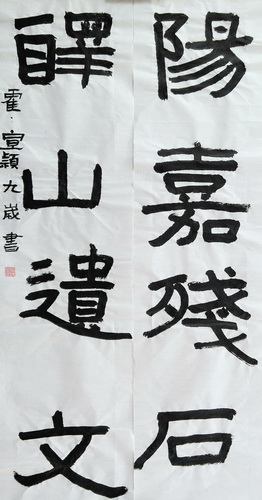 陽嘉殘石
嶧山遺文
霍·宣颖九歲書